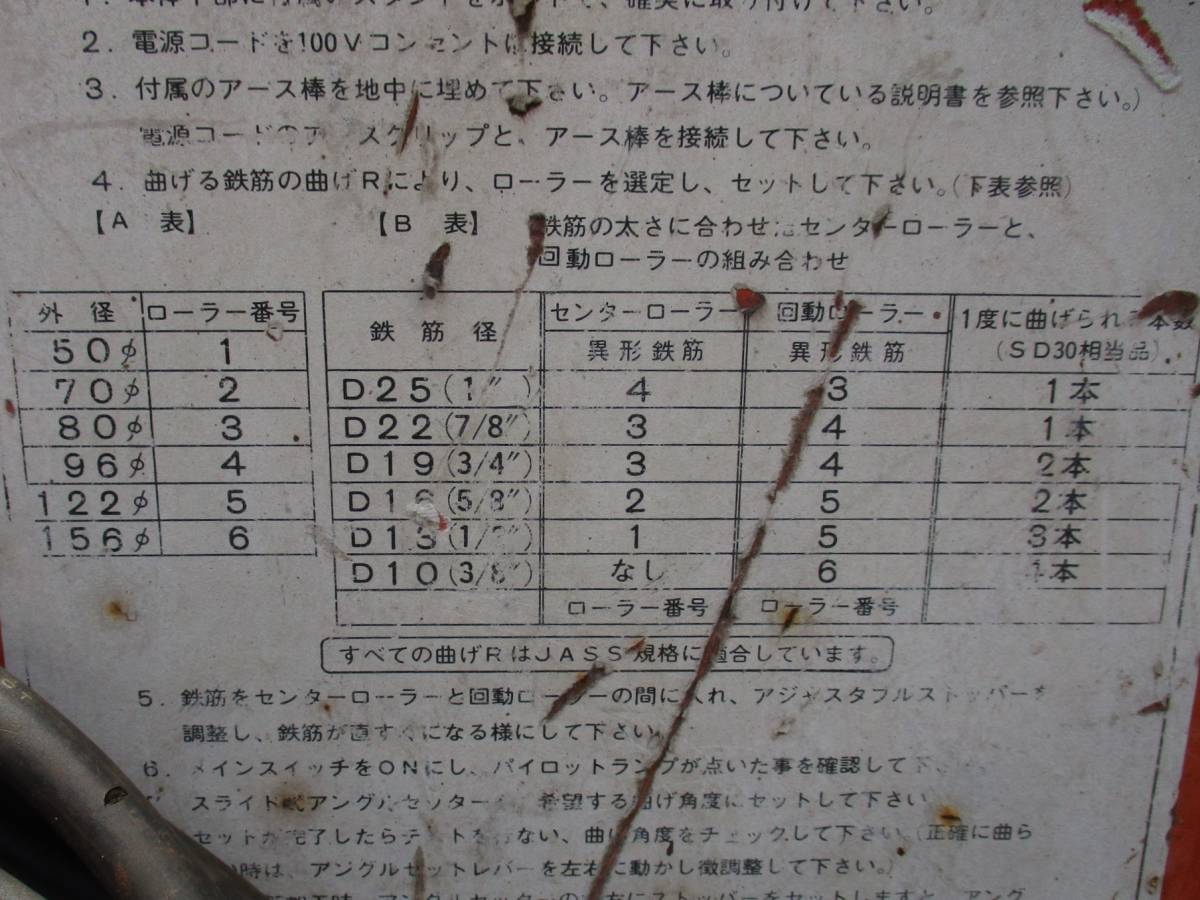 2. 電源コードを100Vコンセントに接続して下さい。
3. 付属のアース棒を地中に埋めて下さい。アース棒についている説明書を参照下さい。)
電源コードのアースクリップと、アース棒を接続して下さい。
4. 曲げる鉄筋の曲げRにより、ローラーを選定し、セットして下さい。(下表参照)
【A 表】
外 径 ローラー番号
50φ 1
70φ 2
80φ 3
96φ 4
122φ 5
156φ 6
【B 表】 鉄筋の太さに合わせたセンターローラーと、
回動ローラーの組み合わせ
鉄 筋 径 センターローラー 回動ローラー 1度に曲げられる本数
異形鉄筋 異形鉄筋 (SD30相当品)
D25(1″) 4 3 1本
D22(7/8″) 3 4 1本
D19(3/4″) 3 4 2本
D16(5/8″) 2 5 2本
D13(1/2″) 1 5 3本
D10(3/8″) なし 6 本
ローラー番号 ローラー番号
すべての曲げRはJASS規格に適合しています。
5. 鉄筋をセンターローラーと回動ローラーの間に入れ、アジャスタブルストッパーを
調整し、鉄筋が真すぐになる様にして下さい。
6. メインスイッチをONにし、パイロットランプが点いた事を確認して下
スライド式アングルセッターを 希望する曲げ角度にセットして下さい
セットが完了したらテストを行ない、曲げ角度をチェックして下さい。(正確に曲ら
時は、アングルセットレバーを左右に動かし微調整して下さい。)